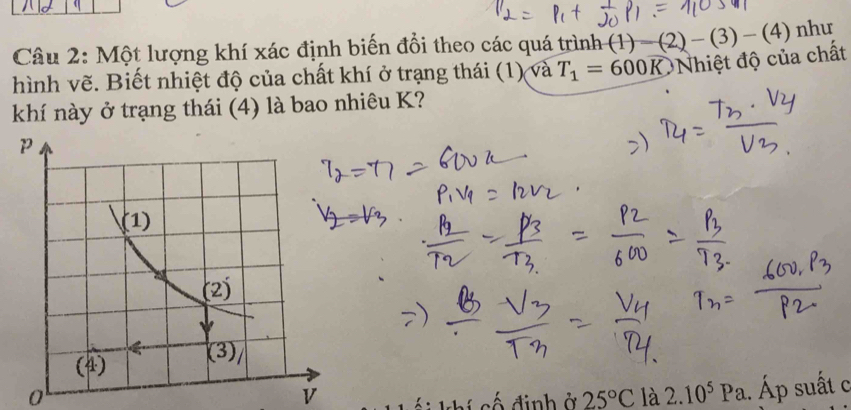 P₂ = P₁ + 1/20 P₁ =
Câu 2: Một lượng khí xác định biến đổi theo các quá trình (1) – (2) – (3) – (4) như
hình vẽ. Biết nhiệt độ của chất khí ở trạng thái (1) và T₁ = 600K. Nhiệt độ của chất
khí này ở trạng thái (4) là bao nhiêu K?
=> T4 = T3 . V4 / V3.
P
(1)
(2)
(3)
(4)
O
V
T2 = T1 = 600K
P1V1 = P2V2.
V2 = V3.
P2/T2 = P3/T3. = P2/600 = P3/T3.
=> V3/T3 = V4/T4.
T3 = 600.P3 / P2
khí cố định ở 25°C là 2.10⁵ Pa. Áp suất c